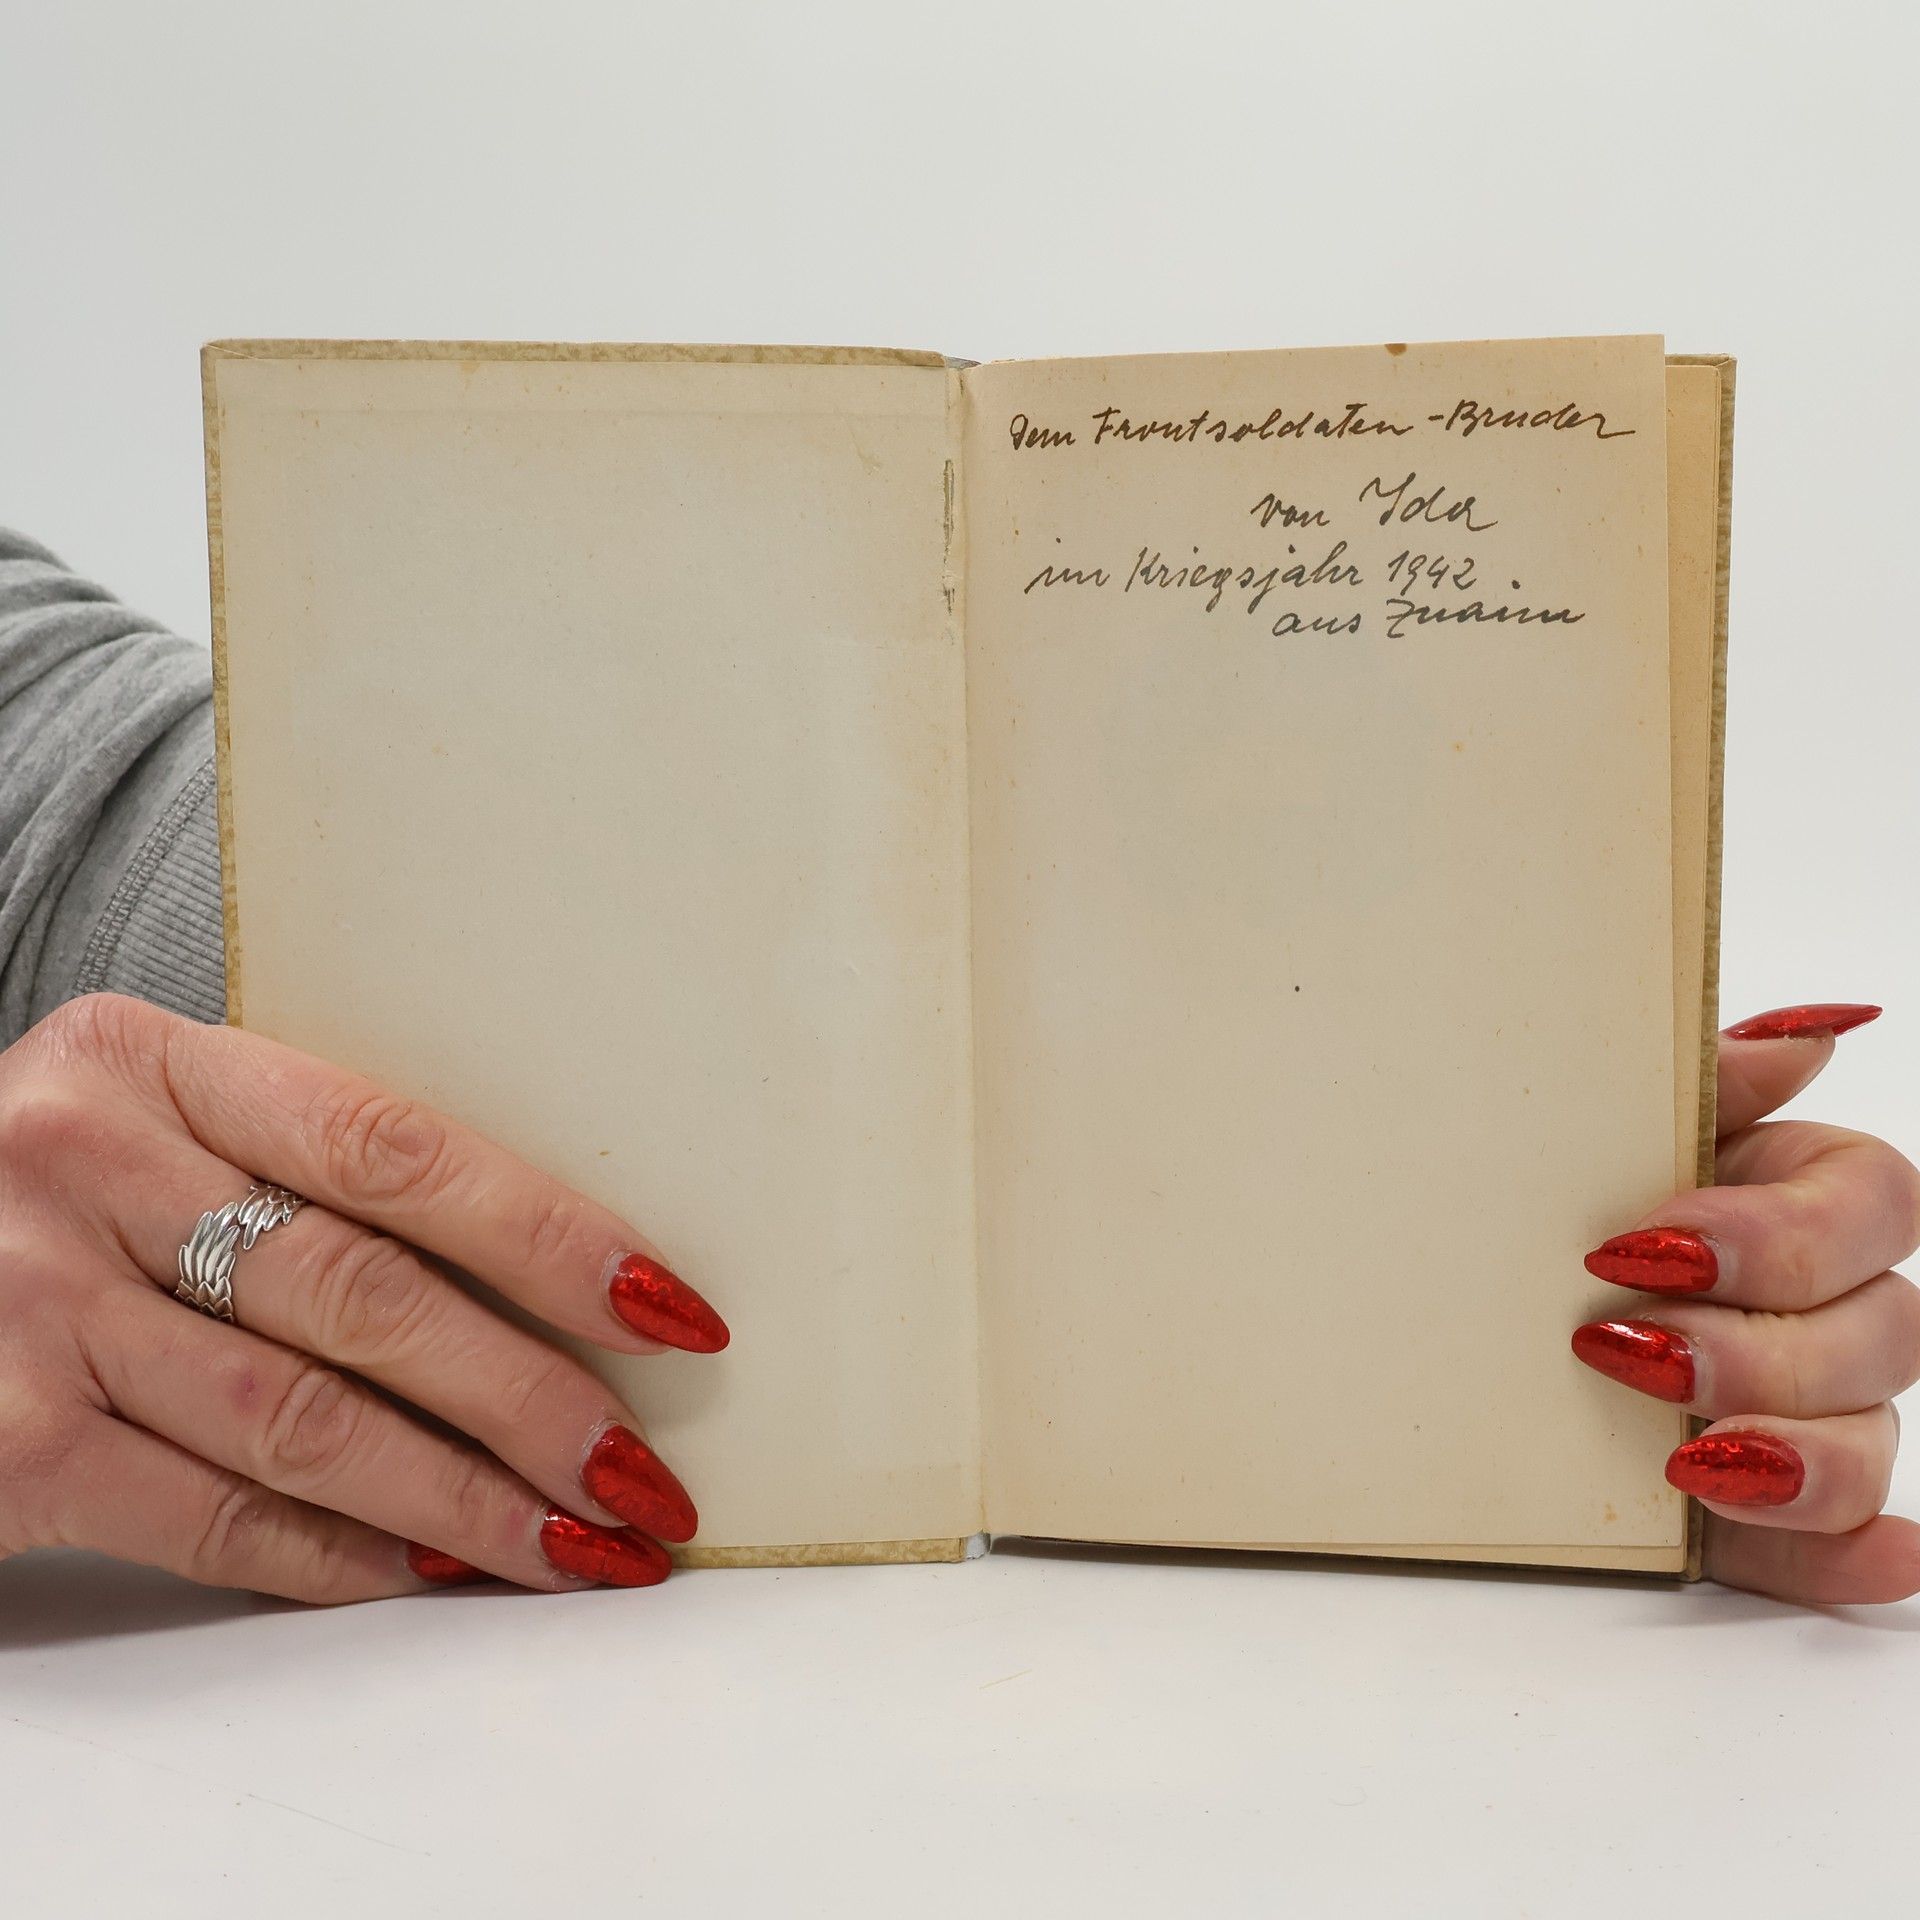 Dem Frontsoldaten - Bruder
von Ida
im Kriegsjahr 1942.
aus Znaim